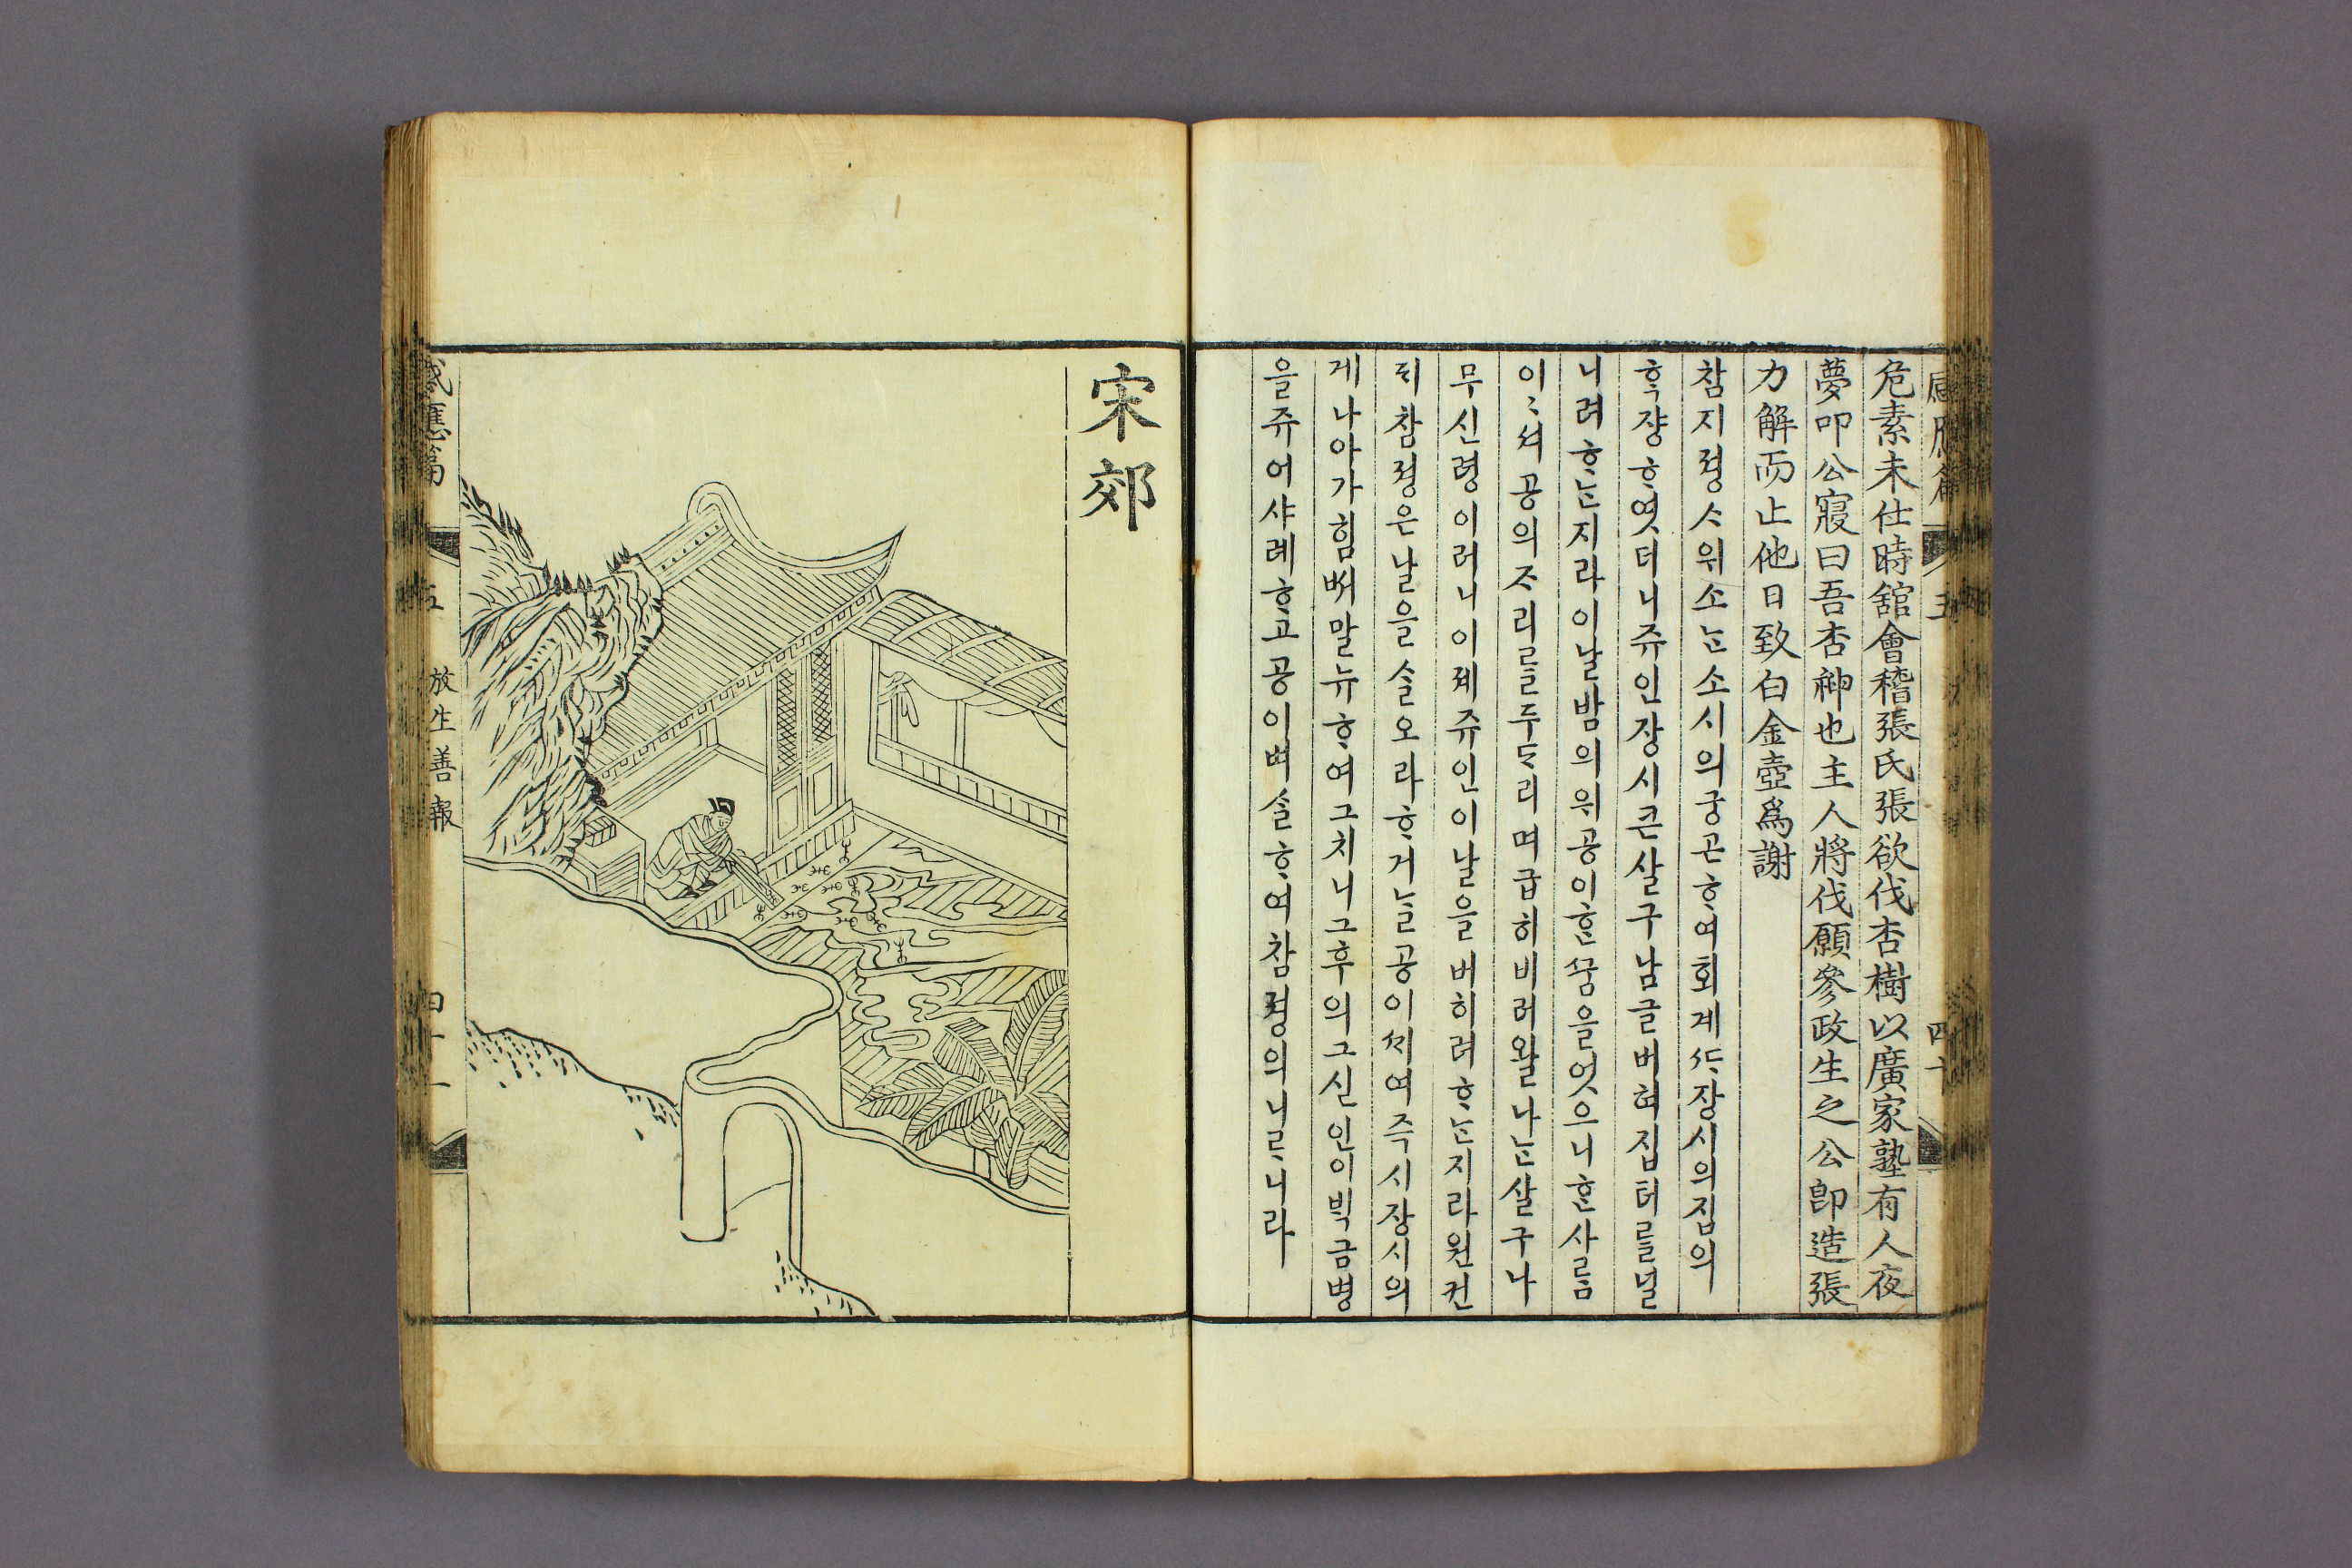 危素未仕時舘會稽張氏張欲伐杏樹以廣家塾有人夜
夢叩公寢曰吾杏神也主人將伐願參政生之公卽造張
力解而止他日致白金壺爲謝
참지졍ᄉᆞ위소ᄂᆞᆫ소시의궁곤ᄒᆞ여회계ᄯᅡ장시의집의
ᄒᆞᆨ쟝ᄒᆞ엿더니쥬인장시큰살구남글버혀집터를널
니려ᄒᆞᄂᆞᆫ지라이날밤의위공이ᄒᆞᆫᄭᅮᆷ을엇으니ᄒᆞᆫ사ᄅᆞᆷ
이〻셔공의ᄌᆞ리를두ᄃᆞ리며급히비러왈나ᄂᆞᆫ살구나
무신령이러니이졔쥬인이날을버히려ᄒᆞᄂᆞᆫ지라원컨
ᄃᆡ참졍은날을술오라ᄒᆞ거ᄂᆞᆯ공이ᄭᆡ여즉시장시의
게나아가힘ᄡᅥ말뉴ᄒᆞ여그치니그후의그신인이ᄇᆡᆨ금병
을쥬어샤례ᄒᆞ고공이벼슬ᄒᆞ여참졍의니ᄅᆞ니라
感應篇 五 四十
宋郊
感應篇 五 放生善報 四十一